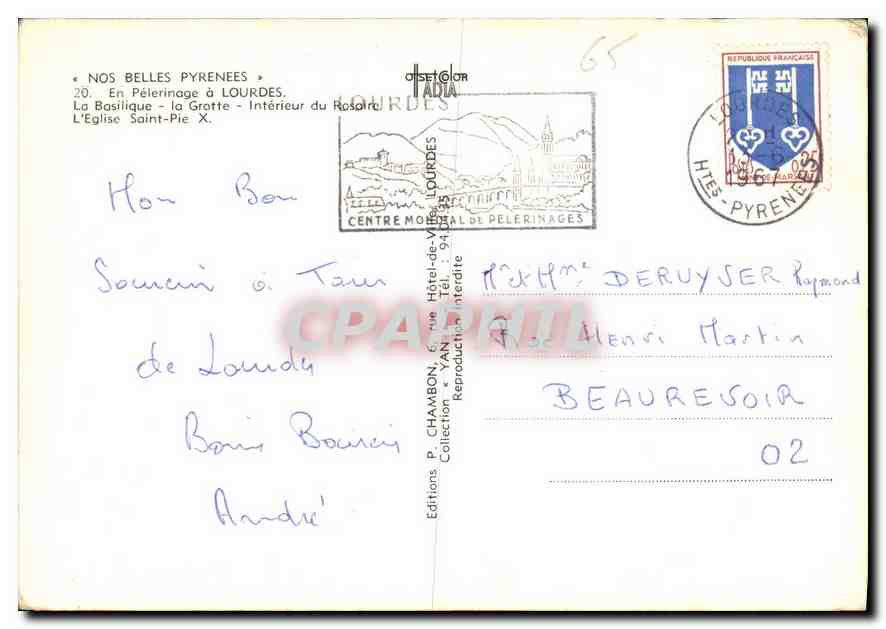 « NOS BELLES PYRENEES »
20. En Pélerinage à LOURDES.
La Basilique - la Grotte - Intérieur du Rosaire
L'Eglise Saint-Pie X.
OFFSET COLOR
IADIA
65
LOURDES
CENTRE MONDIAL DE PELERINAGES
REPUBLIQUE FRANÇAISE
0,25
MONT-DE-MARSAN
LOURDES
1967
HTES-PYRENEES
Mon Bon
Souvenir à Tous
de Lourdes
Bons Baisers
André
Editions P. CHAMBON, 6, rue Hôtel-de-Ville, LOURDES
Collection « YAN » Tél. : 94.
Reproduction interdite
CPAPHIL
Mr et Mme DERUYSER Raymond
Rue Henri Martin
BEAUREVOIR
02